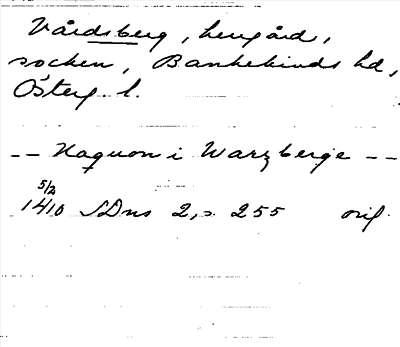 Vårdsberg, herrgård,
socken, Bankekinds hd,
Österg. l.
-- Haquon i Warzberge --
5/2
1410 SDns 2, s. 255 orig.